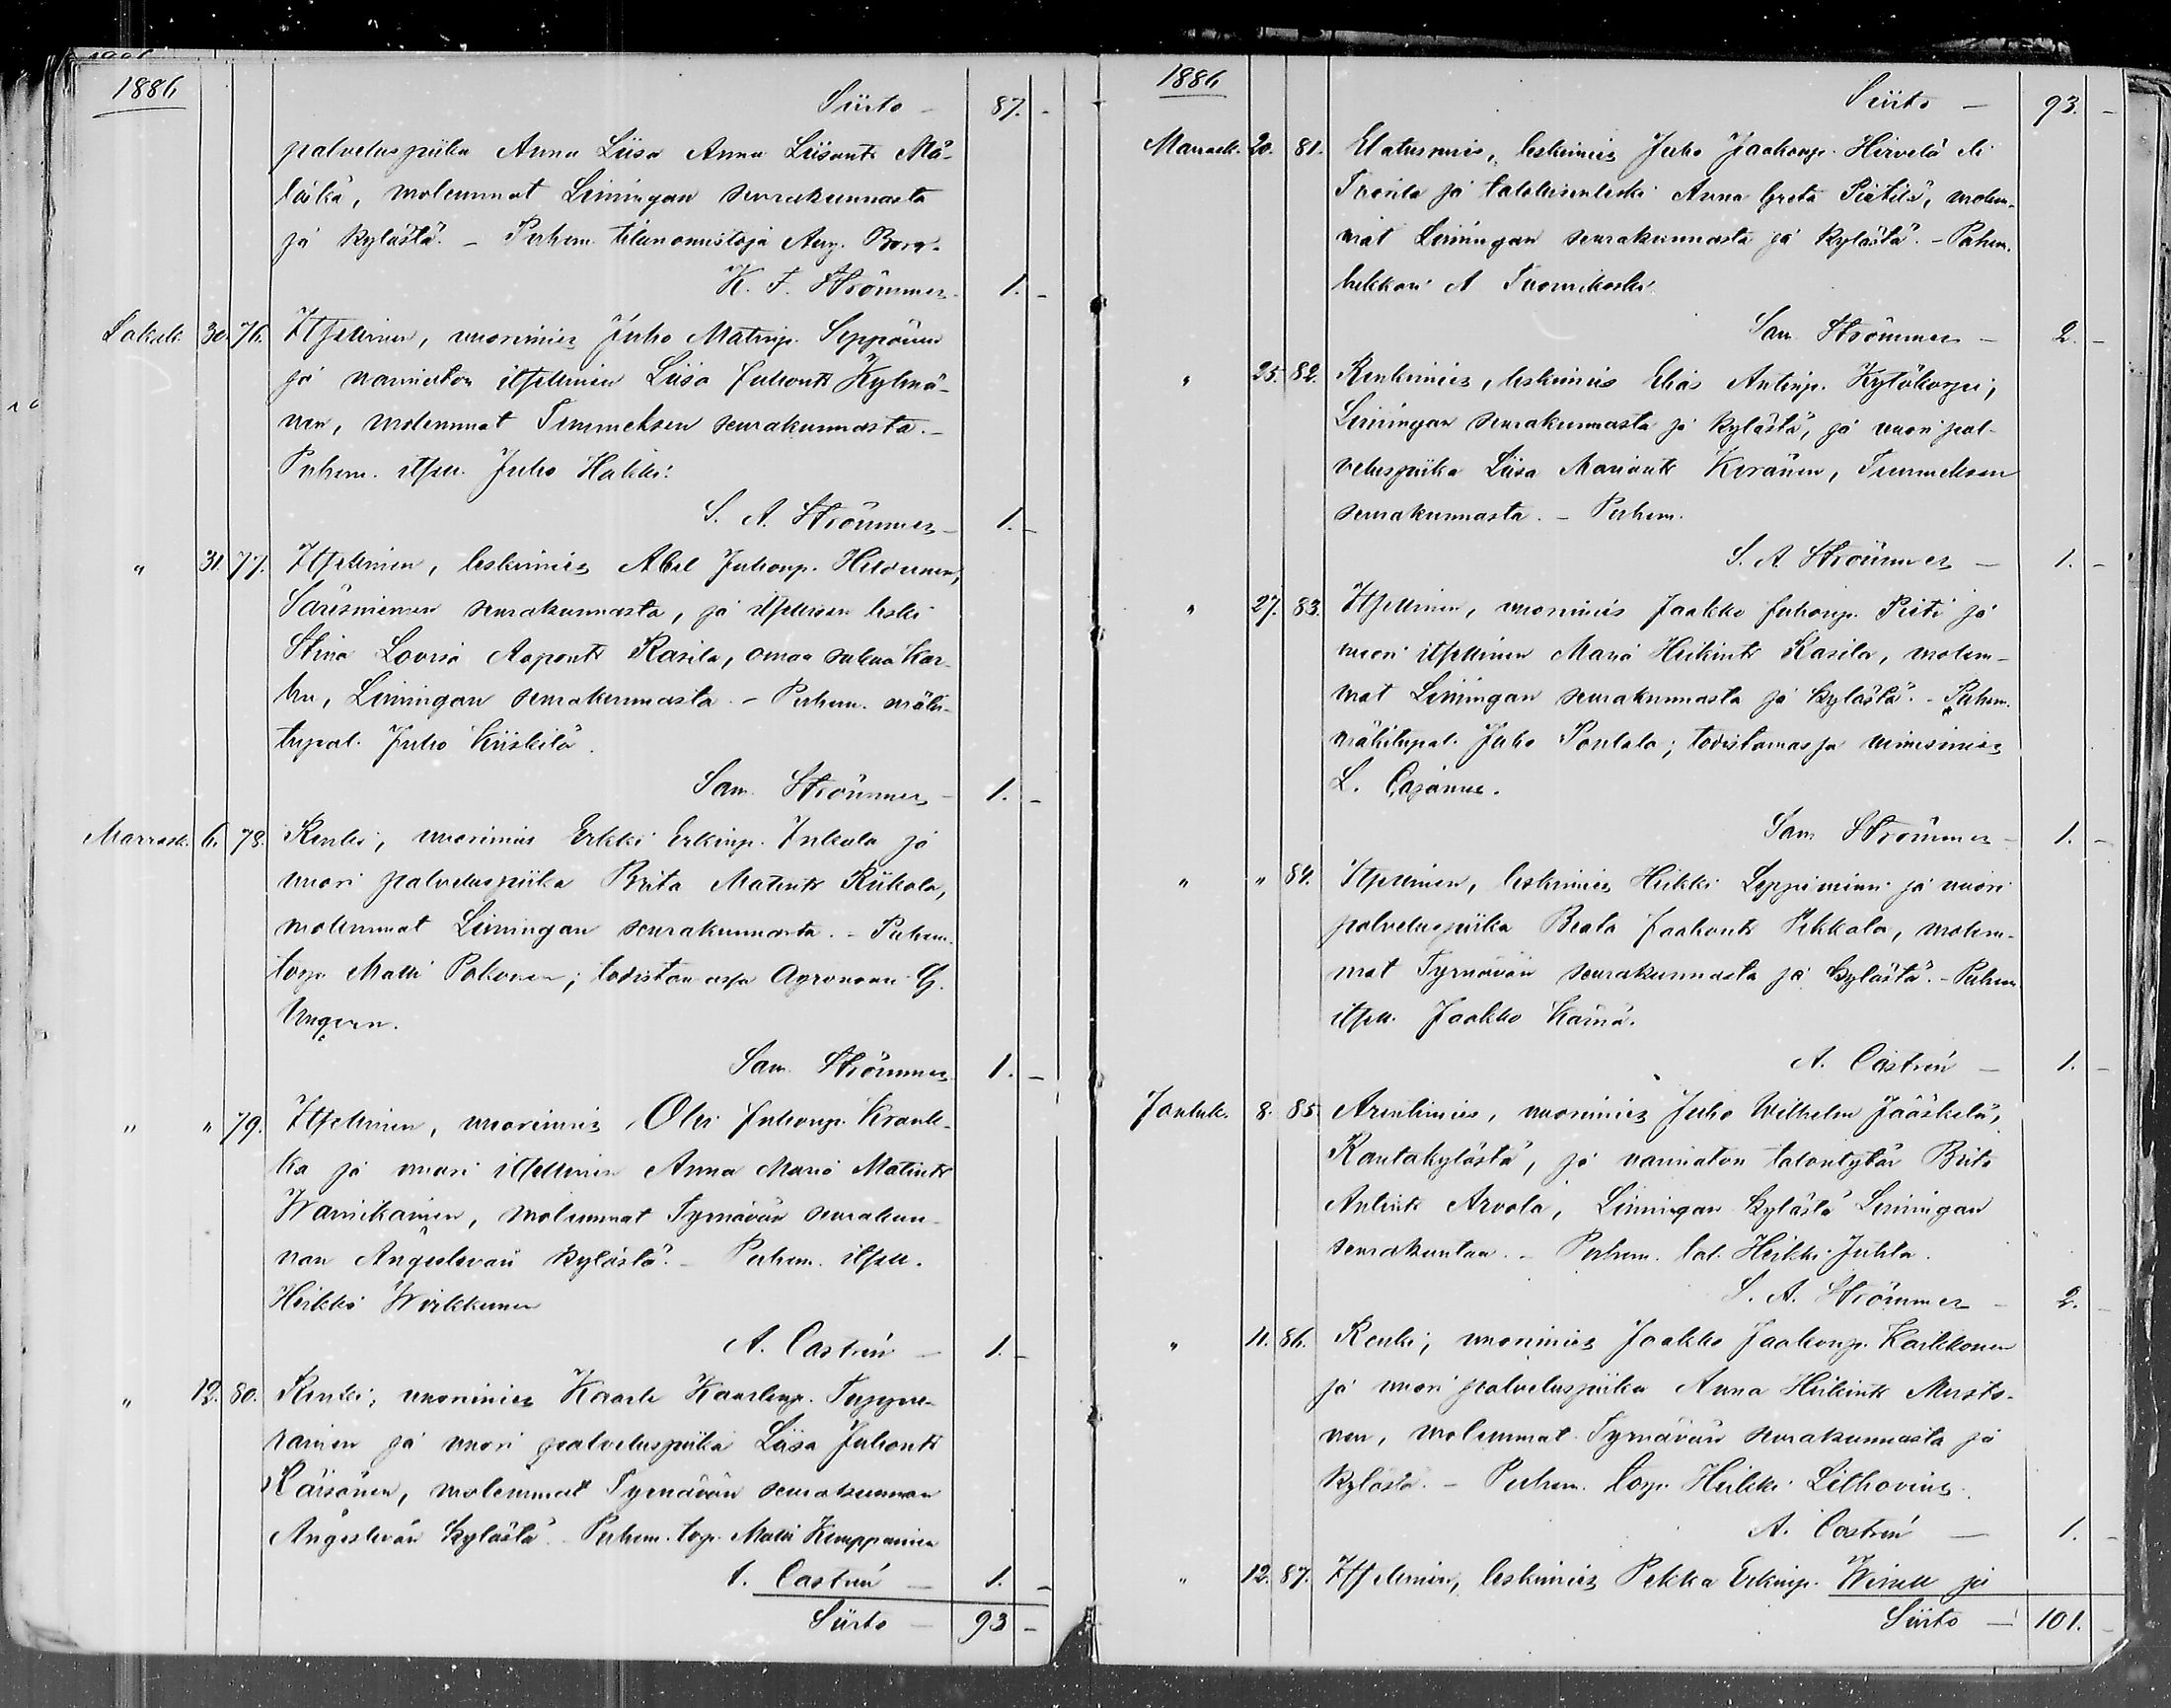 1886
Siirto - 87. -
palveluspiika Anna Liisa Anna Liisant. Mä-
läskä, molemmat Limingan seurakunnasta
ja kylästä. - Puhem. tilanomistaja Aug. Borg.
K. F. Strömmer - 1. -
Lokak. 30. 76. Itsellinen, nuorimies Juho Matinp. Seppänen
ja vaimoton itsellinen Liisa Juhont. Kylmä-
nen, molemmat Temmeksen seurakunnasta. -
Puhem. itsell. Juho Hakki.
S. A. Strömmer - 1. -
" 31. 77. Itsellinen, leskimies Abel Juhonp. Hildunen,
Säresniemen seurakunnasta, ja itsellisen leski
Stina Lovisa Aapont. Rasila, omaa sukua Kar-
hu, Limingan seurakunnasta. - Puhem. mäki-
tupal. Juho Kiiskilä.
Sam. Strömmer - 1. -
Marrask. 6. 78. Renki, nuorimies Erkki Erkinp. Inkala ja
nuori palveluspiika Brita Matint. Riikola,
molemmat Limingan seurakunnasta. - Puhem.
torp. Matti Pokonen; todistamassa Agronomi G.
Ungern.
Sam. Strömmer 1. -
" " 79. Itsellinen, nuorimies Olli Juhonp. Krank-
ka ja nuori itsellinen Anna Maria Matint.
Wainikainen, molemmat Tyrnävän seurakun-
nan Ångeslevän kylästä. - Puhem. itsell.
Heikki Wirkkunen
A. Castrén - 1. -
" 12. 80. Renki, nuorimies Kaarle Kaarlenp. Tuppu-
rainen ja nuori palveluspiika Liisa Juhont.
Kärsänen, molemmat Tyrnävän seurakunnan
Ångeslevän kylästä. Puhem. torp. Matti Kemppainen
A. Castrén - 1. -
Siirto - 93 -
1886
Siirto - 93. -
Marrask. 20. 81. Elatusmies, leskimies Juho Jaakonp. Hirvelä eli
Trosila ja talollisenleski Anna Greta Pietilä, molem-
mat Limingan seurakunnasta ja kylästä. - Puhem.
lukkari A Tuomikoski.
Sam. Strömmer - 2. -
" 25. 82. Renkimies, leskimies Elias Antinp. Kytökorpi,
Limingan seurakunnasta ja kylästä, ja nuori pal-
veluspiika Liisa Mariant. Keränen, Temmeksen
seurakunnasta. - Puhem.
S. A. Strömmer - 1. -
" 27. 83. Itsellinen, nuorimies Jaakko Juhonp. Pieti ja
nuori itsellinen Maria Heikint. Rasila, molem-
mat Limingan seurakunnasta ja kylästä. - Puhem.
mäkitupal. Juho Pontala; todistamassa nimismies
L. Cajanus.
Sam. Strömmer - 1. -
" " 84. Itsellinen, leskimies Heikki Leppiniemi ja nuori
palveluspiika Beata Jaakont. Pekkala, molem-
mat Tyrnävän seurakunnasta ja kylästä. - Puhem.
itsell. Jaakko Kärnä.
A. Castrén - 1. -
Jouluk. 8. 85. Arentimies, nuorimies Juho Wilhelm Jääskelä,
Rantakylästä, ja vaimoton talontytär Brita
Antint. Arvola, Limingan kylästä Limingan
seurakuntaa. - Puhem. tal. Heikki Juhta.
S. A. Strömmer - 2. -
" 11. 86. Renki, nuorimies Jaakko Jaakonp. Karkkonen
ja nuori palveluspiika Anna Heikint. Musto-
nen, molemmat Tyrnävän seurakunnasta ja
kylästä. - Puhem. torp. Heikki Lithovius.
A. Castrén - 1. -
" 12. 87. Itsellinen, leskimies Pekka Erkinp. Wirell ja
Siirto - 101. -